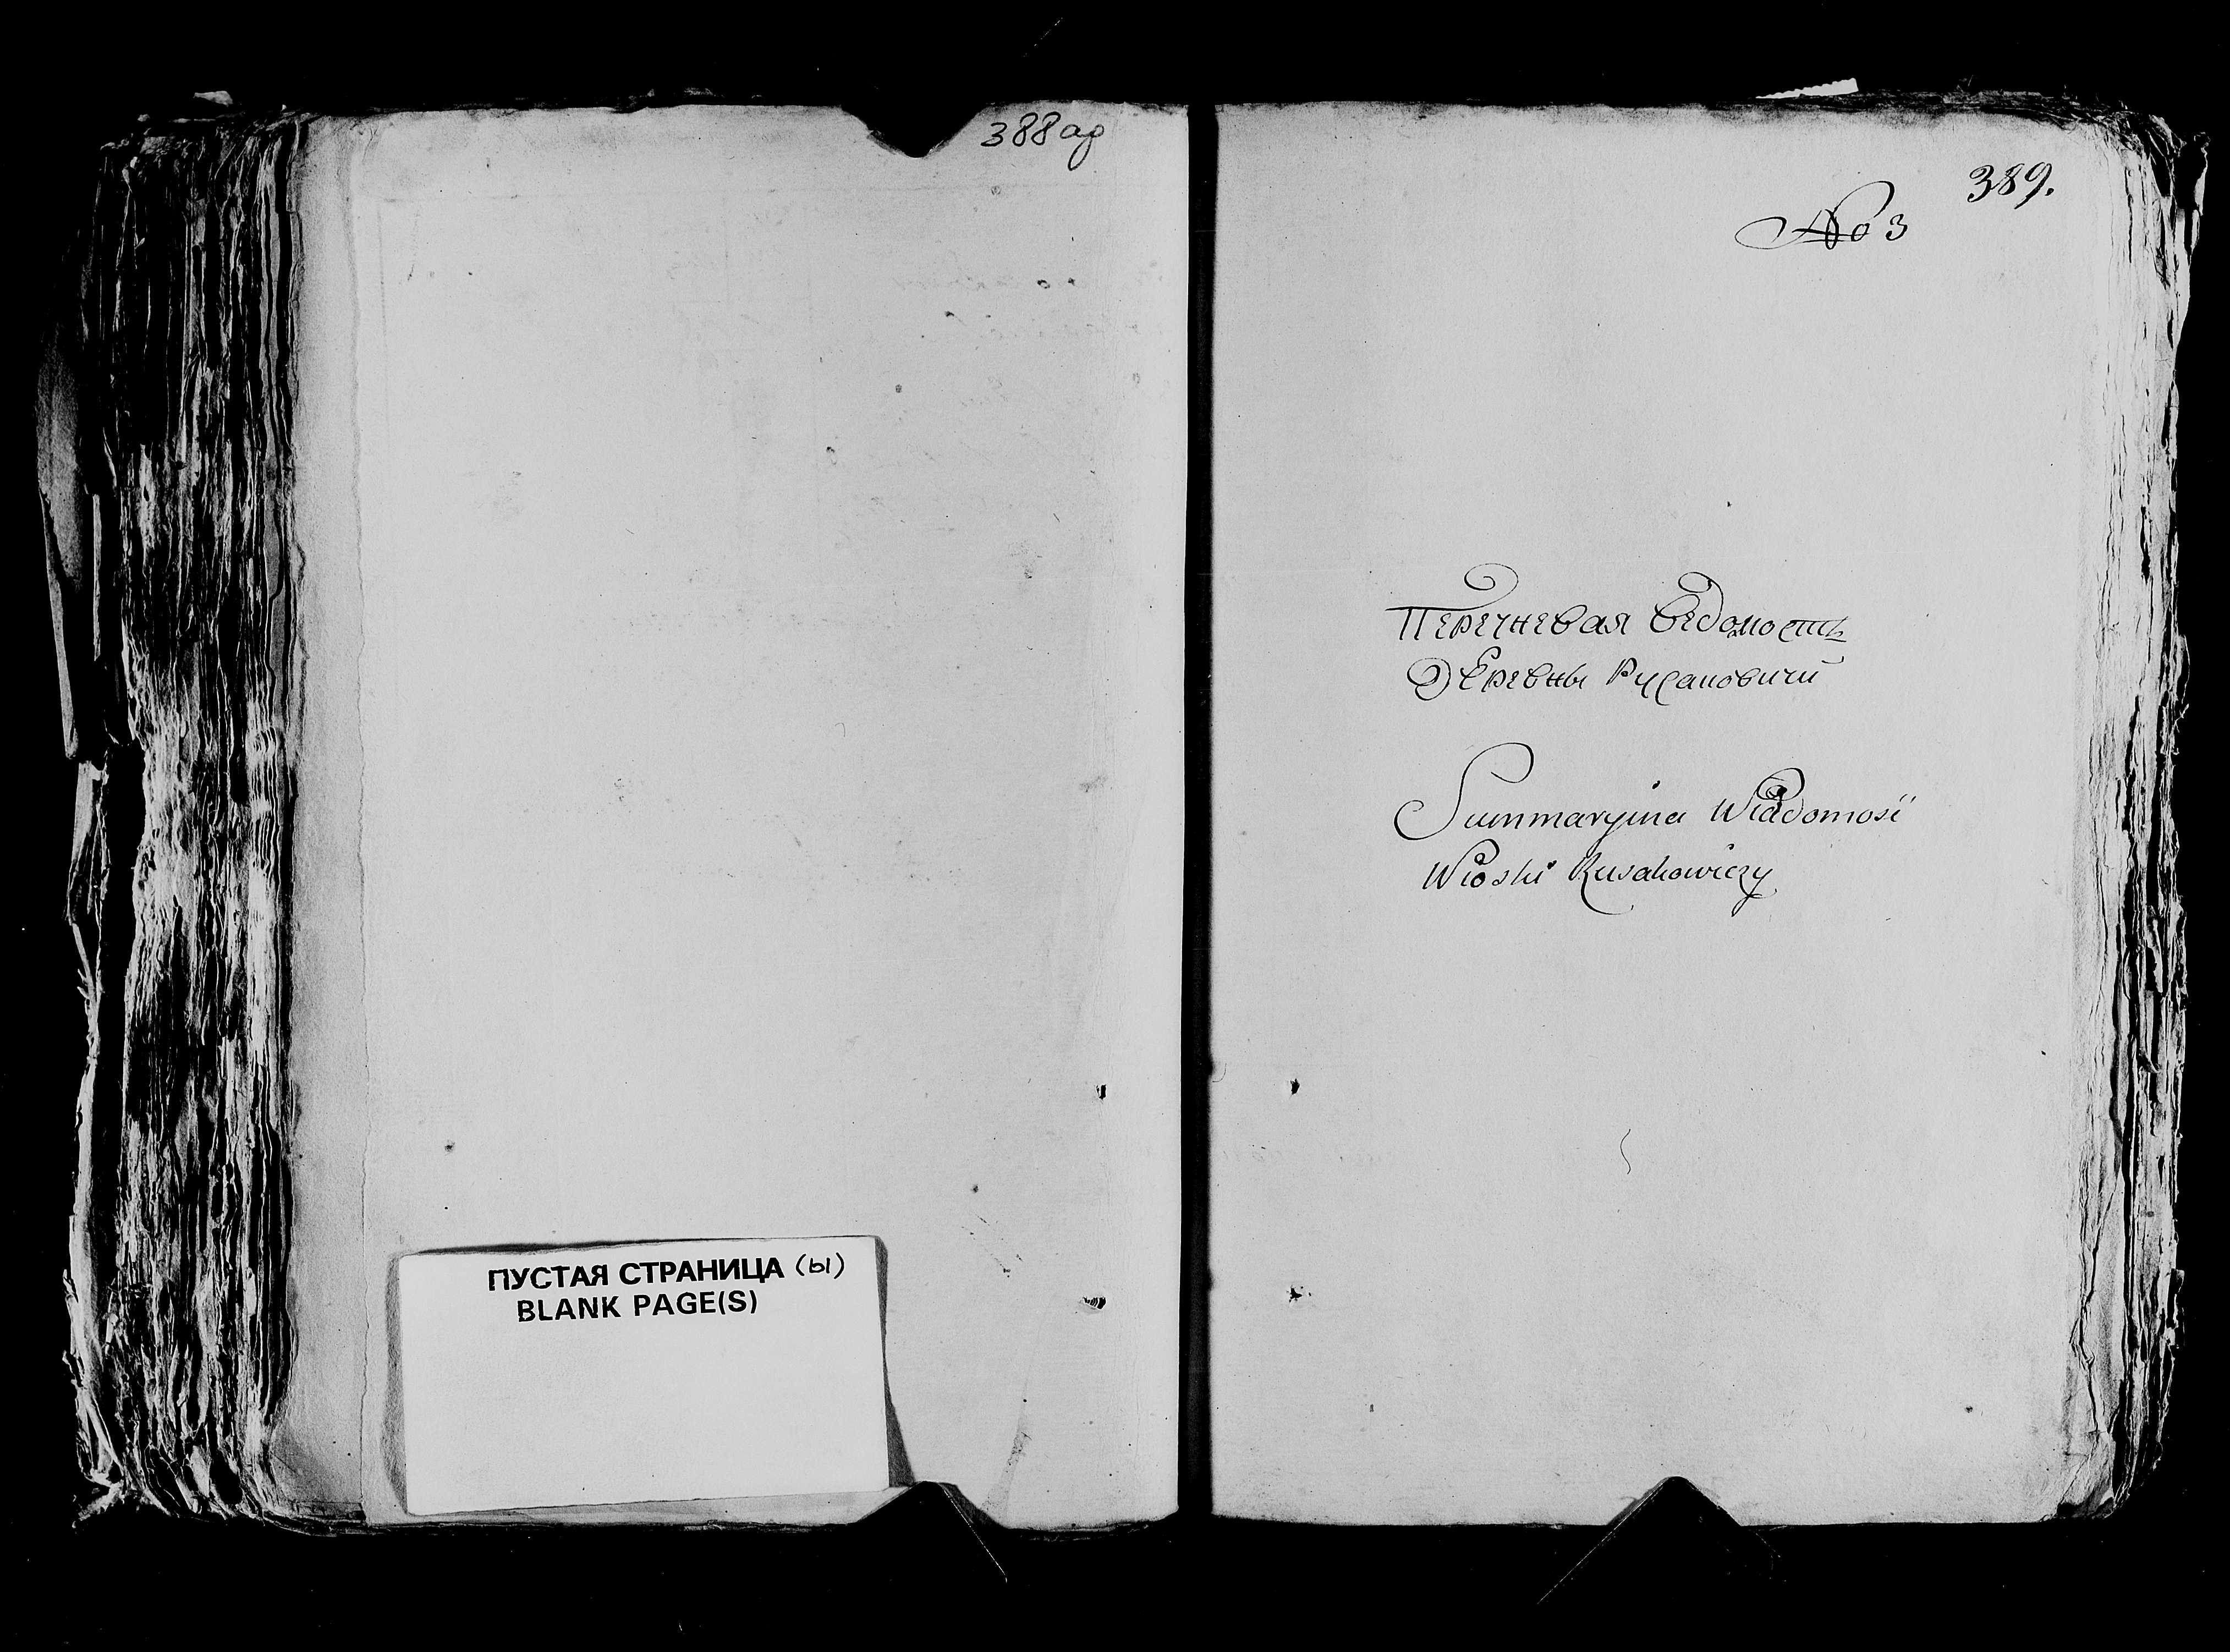 388 об
ПУСТАЯ СТРАНИЦА (ы)
BLANK PAGE(S)
389.
No 3
Перечневая ведомость
Деревны Русаковичи
Summaryina Wiadomosć
Wioski Rusakowiczy